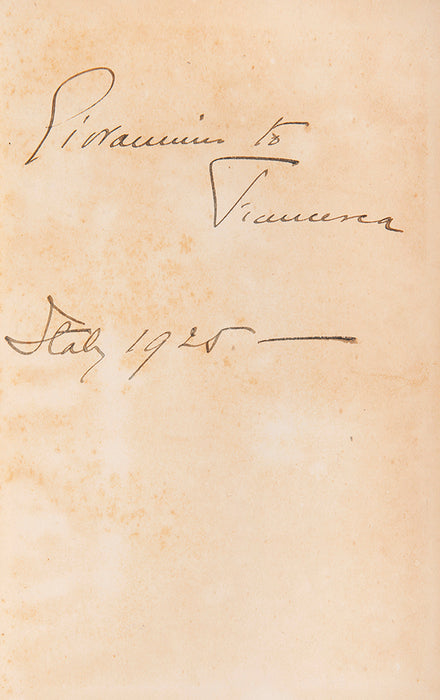 Giovannino to
Francesca
Italy 1925 —